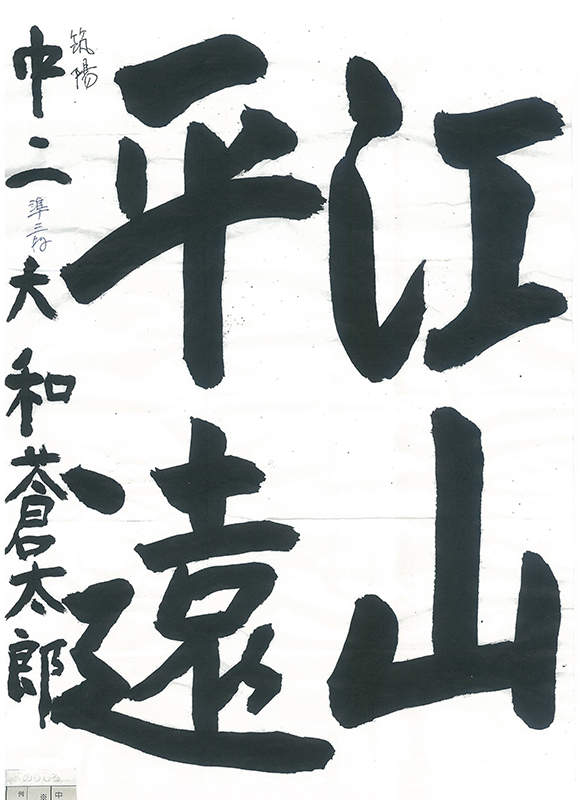 江山
平遠
筑陽
中二 準三段 大和蒼太郎